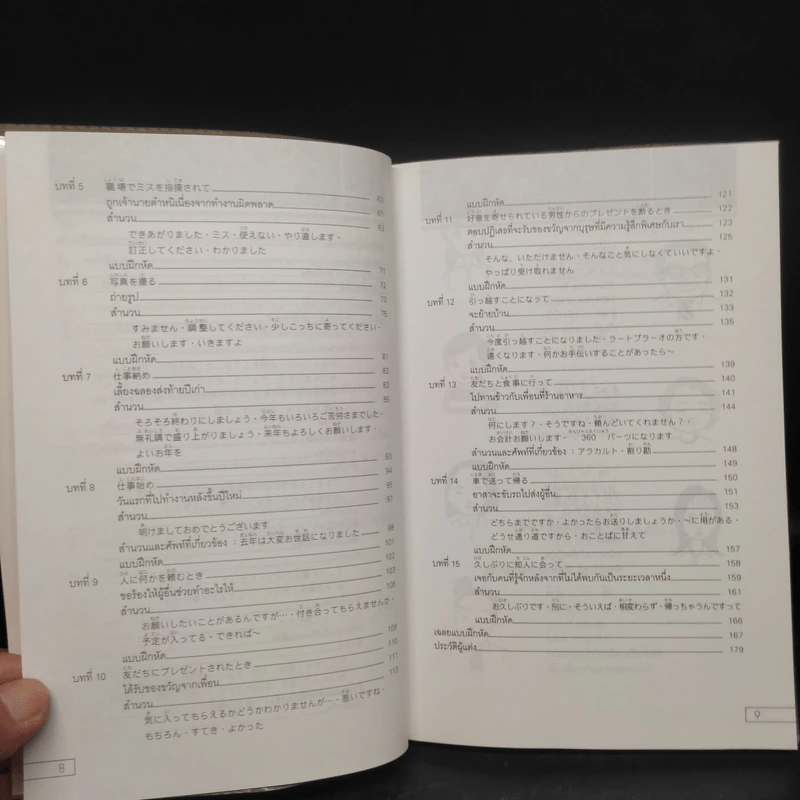 บทที่ 5 職場でミスを指摸されて 60
ถูกเจ้านายตำหนิเนื่องจากทำงานผิดพลาด 61
สำนวน 63
できあがりました・ミス・使えない・やり直します・
訂正してください・わかりました
แบบฝึกหัด 71
บทที่ 6 写真を撮る 72
ถ่ายรูป 73
สำนวน 75
すみません・調整してください・少しこっちに寄ってください・
お願いします・いきますよ
แบบฝึกหัด 81
บทที่ 7 仕事納め 82
เลี้ยงฉลองส่งท้ายปีเก่า 83
สำนวน 85
そろそろ終わりにしましょう・今年もいろいろご苦労さまでした・
無礼講で盛り上がりましょう・来年もよろしくお願いします・
よいお年を
แบบฝึกหัด 93
บทที่ 8 仕事始め 94
วันแรกที่ไปทำงานหลังขึ้นปีใหม่ 95
สำนวน 97
明けましておめでとうございます
สำนวนและศัพท์ที่เกี่ยวข้อง : 去年は大変お世話になりました 98
แบบฝึกหัด 101
บทที่ 9 人に何かを頼むとき 102
ขอร้องให้ผู้อื่นช่วยทำอะไรให้ 103
สำนวน 105
お願いしたいことがあるんですが…・付き合ってもらえませんか・
予定が入ってる・できれば～
แบบฝึกหัด 109
บทที่ 10 友だちにプレゼントされたとき 110
ได้รับของขวัญจากเพื่อน 111
สำนวน 113
気に入ってもらえるかどうかわかりませんが…・悪いですね・
もちろん・すてき・よかった
8
แบบฝึกหัด 121
บทที่ 11 好意を寄せられている男性からのプレゼントを断るとき 122
ตอนปฏิเสธที่จะรับของขวัญจากบุรุษที่มีความรู้สึกพิเศษกับเรา 123
สำนวน 125
そんな、いただけません・そんなこと気にしなくていいですよ・
やっぱり受け取れません
แบบฝึกหัด 131
บทที่ 12 引っ越すことになって 132
จะย้ายบ้าน 133
สำนวน 135
今度引っ越すことになりました・ラートプラーオの方です・
遠くなります・何かお手伝いすることがあったら～
แบบฝึกหัด 139
บทที่ 13 友だちと食事に行って 140
ไปทานข้าวกับเพื่อนที่ร้านอาหาร 141
สำนวน 144
何にします？・そうですね・頼んどいてくれません？・
お会計お願いします・ 360 バーツになります
สำนวนและศัพท์ที่เกี่ยวข้อง : アラカルト・割り勘 148
แบบฝึกหัด 149
บทที่ 14 車で送って帰る 150
อาสาจะขับรถไปส่งผู้อื่น 151
สำนวน 153
どちらまでですか・よかったらお送りしましょうか・～に用がある・
どうせ通り道ですから・おことばに甘えて
แบบฝึกหัด 157
บทที่ 15 久しぶりに知人に会って 158
เจอกับคนที่รู้จักหลังจากที่ไม่ได้พบกันเป็นระยะเวลาหนึ่ง 159
สำนวน 161
お久しぶりです・別に・そういえば・相変わらず・帰っちゃうんですって
แบบฝึกหัด 166
เฉลยแบบฝึกหัด 167
ประวัติผู้แต่ง 179
9